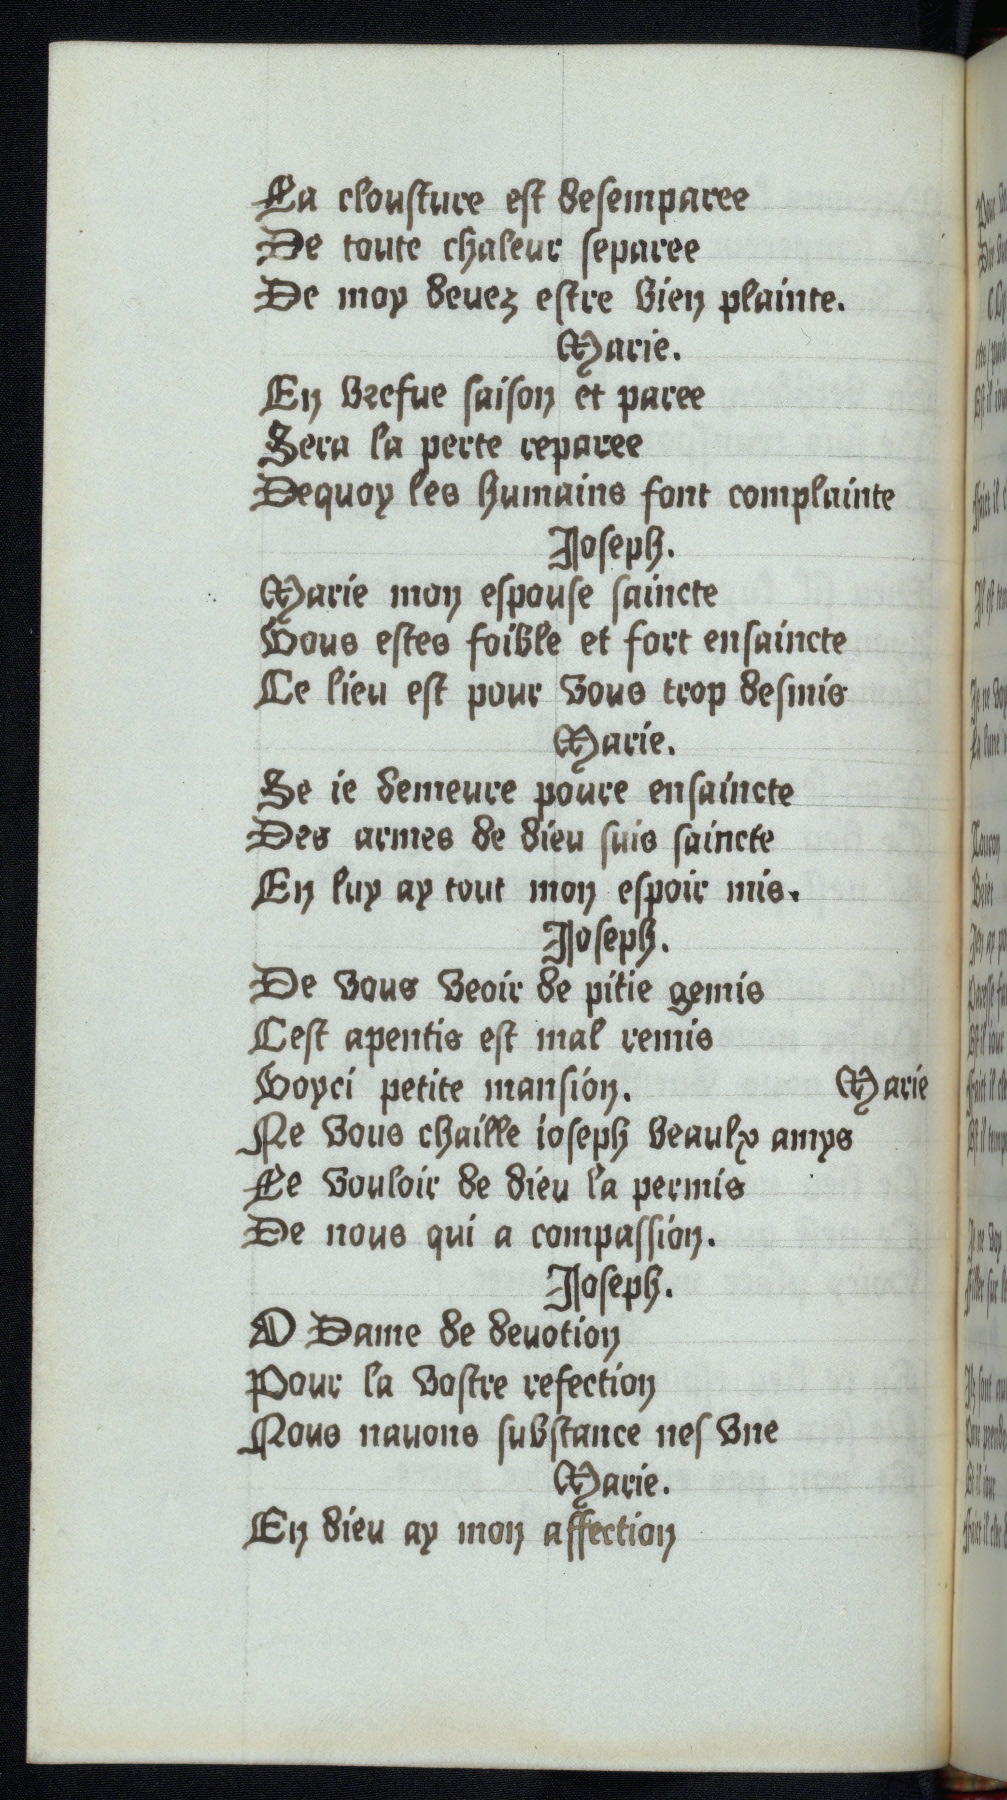 La clousture est desemparee
De toute chaleur separee
De moy deuez estre bien plainte.
Marie.
En brefue saison et paree
Sera la perte reparee
Dequoy les humains font complainte
Joseph.
Marie mon espouse saincte
Vous estes foible et fort ensaincte
Ce lieu est pour vous trop desmis
Marie.
Se ie demeure poure ensaincte
Des armes de dieu suis saincte
En luy ay tout mon espoir mis.
Joseph.
De vous veoir de pitie gemis
Cest apentis est mal remis
Voyci petite mansion. Marie
Ne vous chaille ioseph beaulx amys
Le vouloir de dieu la permis
De nous qui a compassion.
Joseph.
O Dame de deuotion
Pour la vostre refection
Nous nauons substance nes vne
Marie.
En dieu ay mon affection